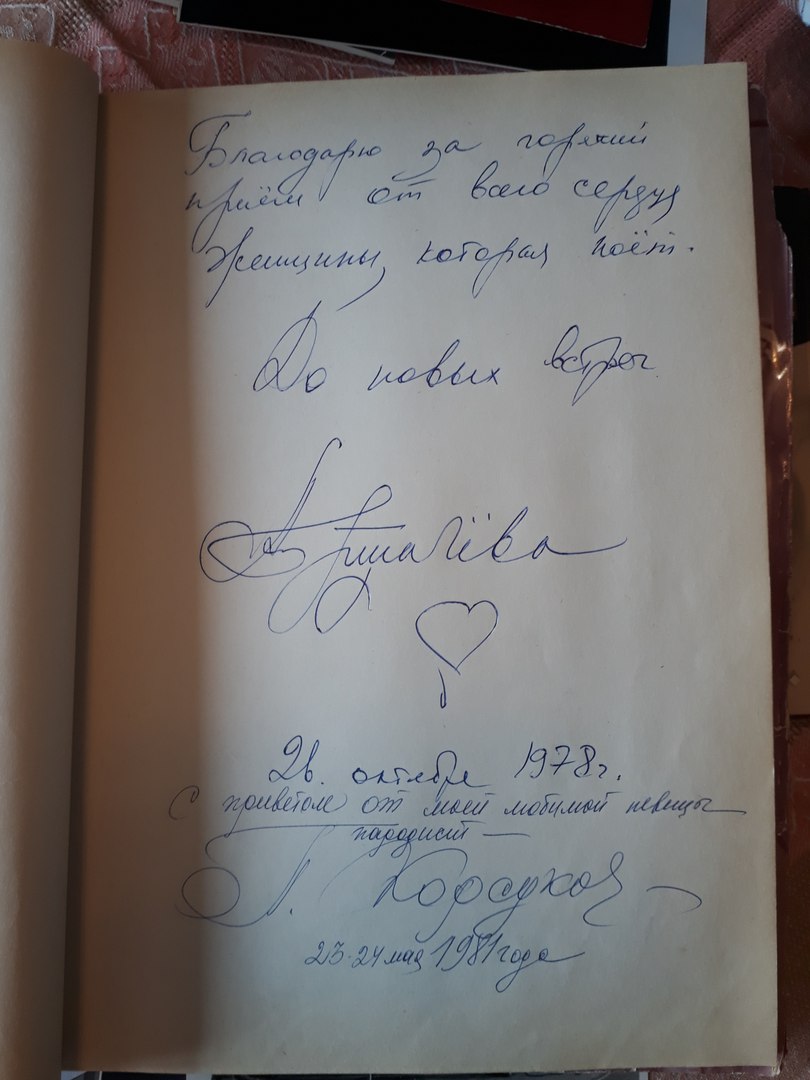 Благодарю за горячий
приём от всего сердца
Женщины, которая поёт.
До новых встреч
А Пугачёва
26. октября 1978г.
С приветом от моей любимой певицы
пародист —
Корсуков
23-24 мая 1981 года